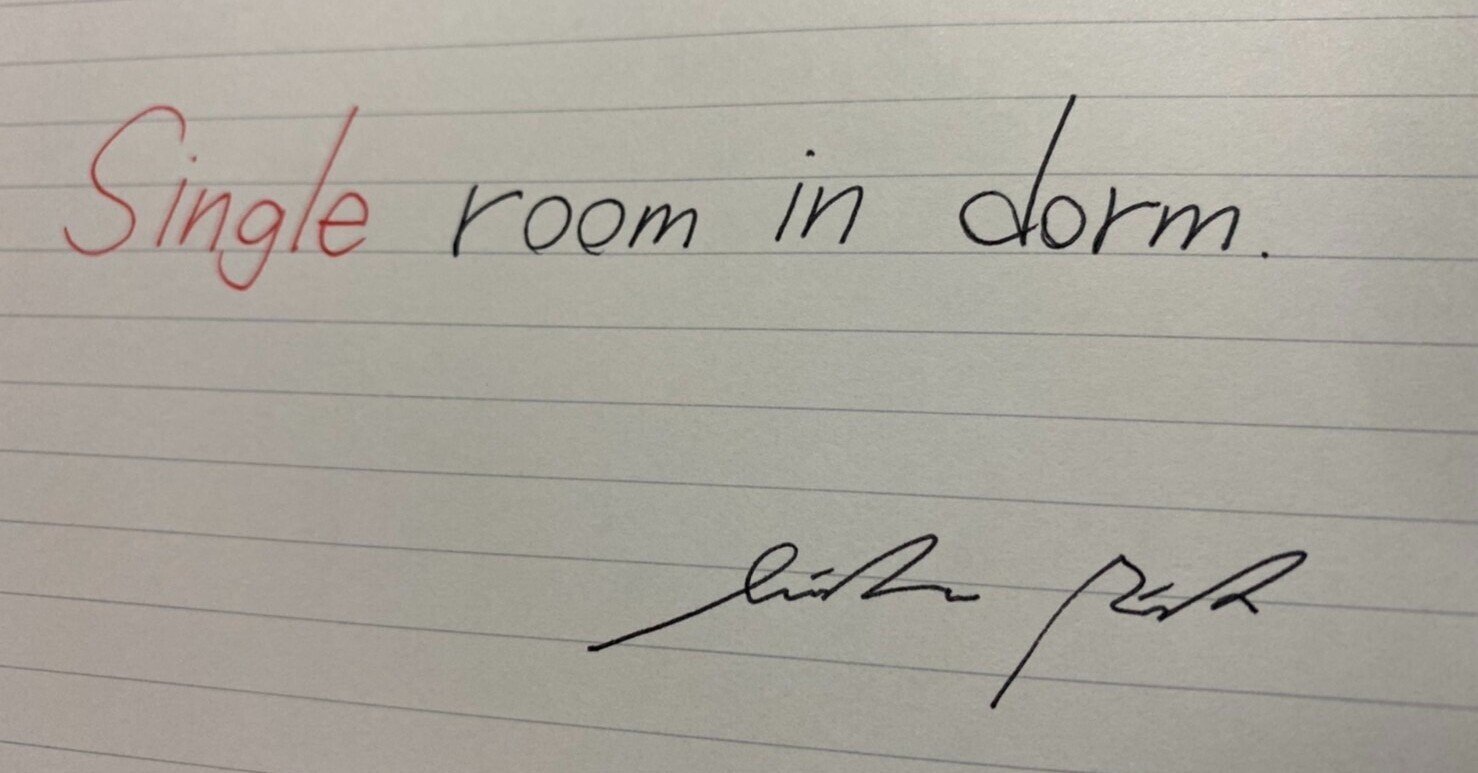 Single room in dorm.